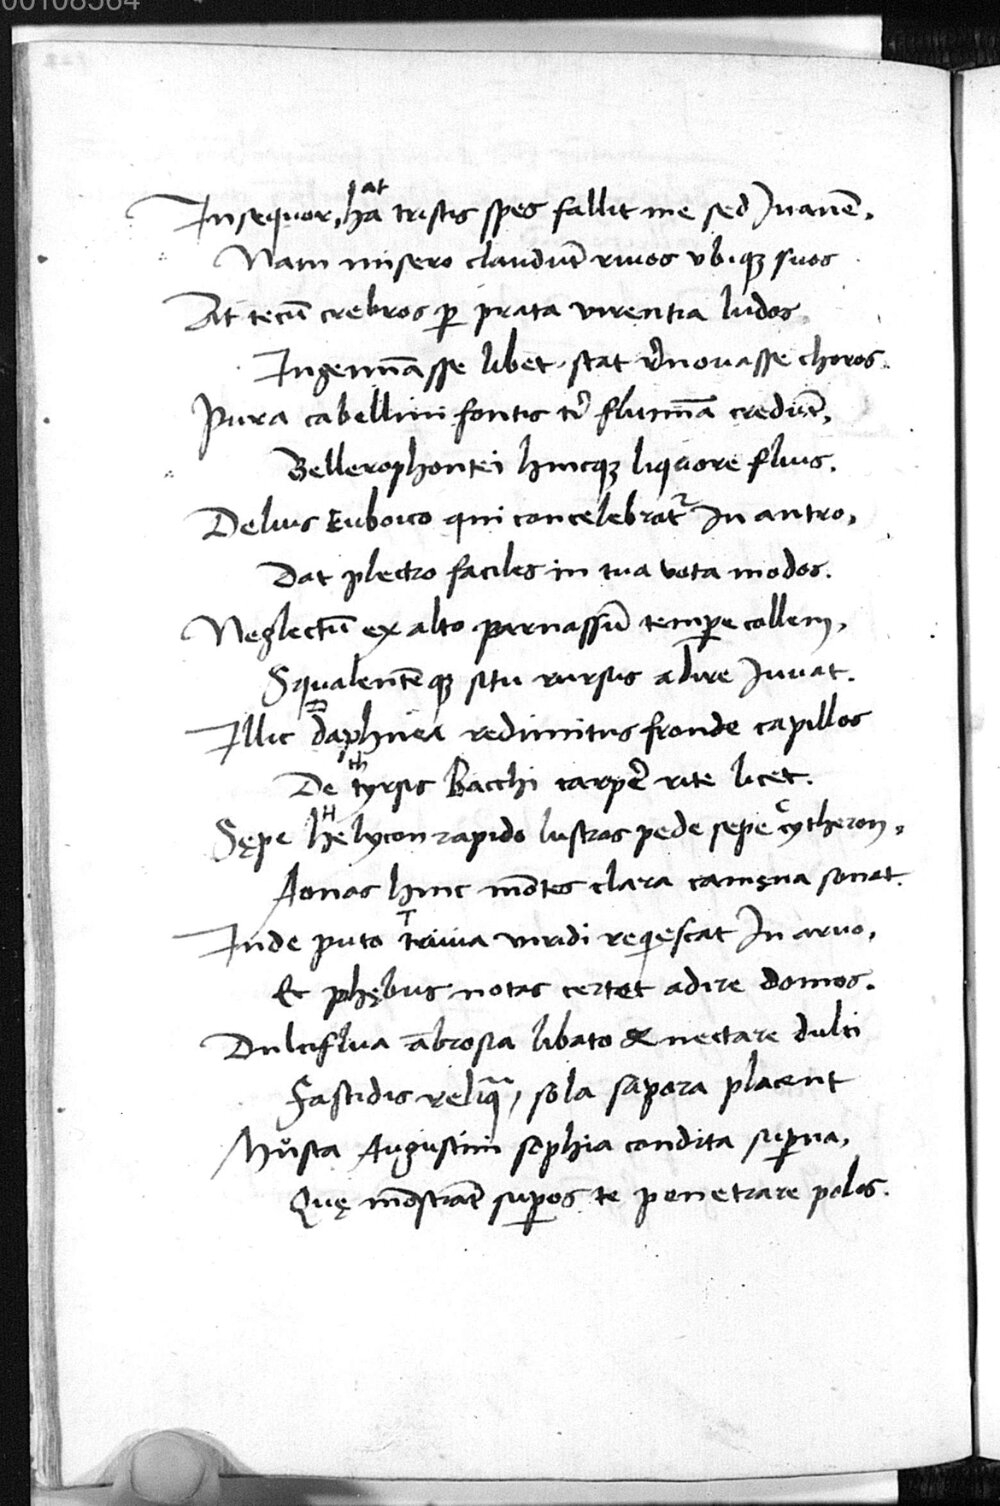 00108564
at
Insequor, ha tristis spes fallit me sed Inanē,
Nam misero claudūt riuos vbiqꝫ suos
At tecū crebros ꝑ prata virentia ludos
Ingemīasse libet stat r̄nouasse choros.
Pura cabellini fontis t' flumīa credūt,
Bellerophontei hincqꝫ liquore fluis.
Delius Euboico qui concelebrat' In antro,
Dat plectro faciles in tua vota modos.
Neglectū ex alto parnassū temꝑe collem,
Squalentēqꝫ situ rursus adire Iuuat.
D
Illic daphnea redimitus fronde capillos
th
De tyrsis Bacchi carper̄ rite licet.
H C
Sępe helycon rapido lustras pede sepe cytheron,
Aonas hinc mōtes clara camęna sonat.
T
Inde puto triuia viridi reqescat In aruo,
Et phębus notas certet adire domos.
Dulciflua ābrosia libato & nectare dulci
Fastidis reliqa, sola sapora placent
Musta Augustini sophia condita suꝑna,
Quę mōstrāt suꝑos te penetrare polos.